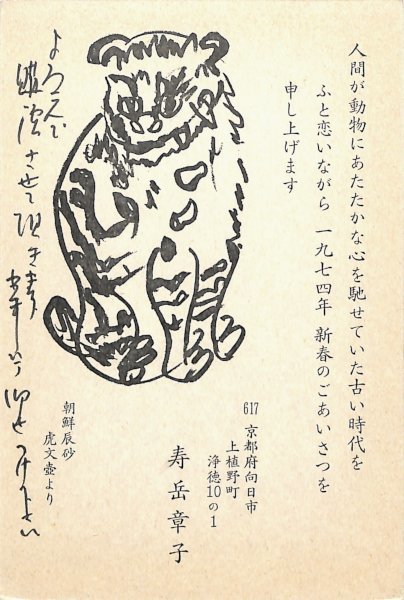 人間が動物にあたたかな心を馳せていた古い時代を
ふと恋いながら 一九七四年 新春のごあいさつを
申し上げます
617 京都府向日市
上植野町
浄徳10の1
寿岳章子
朝鮮辰砂
虎文壺より
よろこんで
させて頂きます